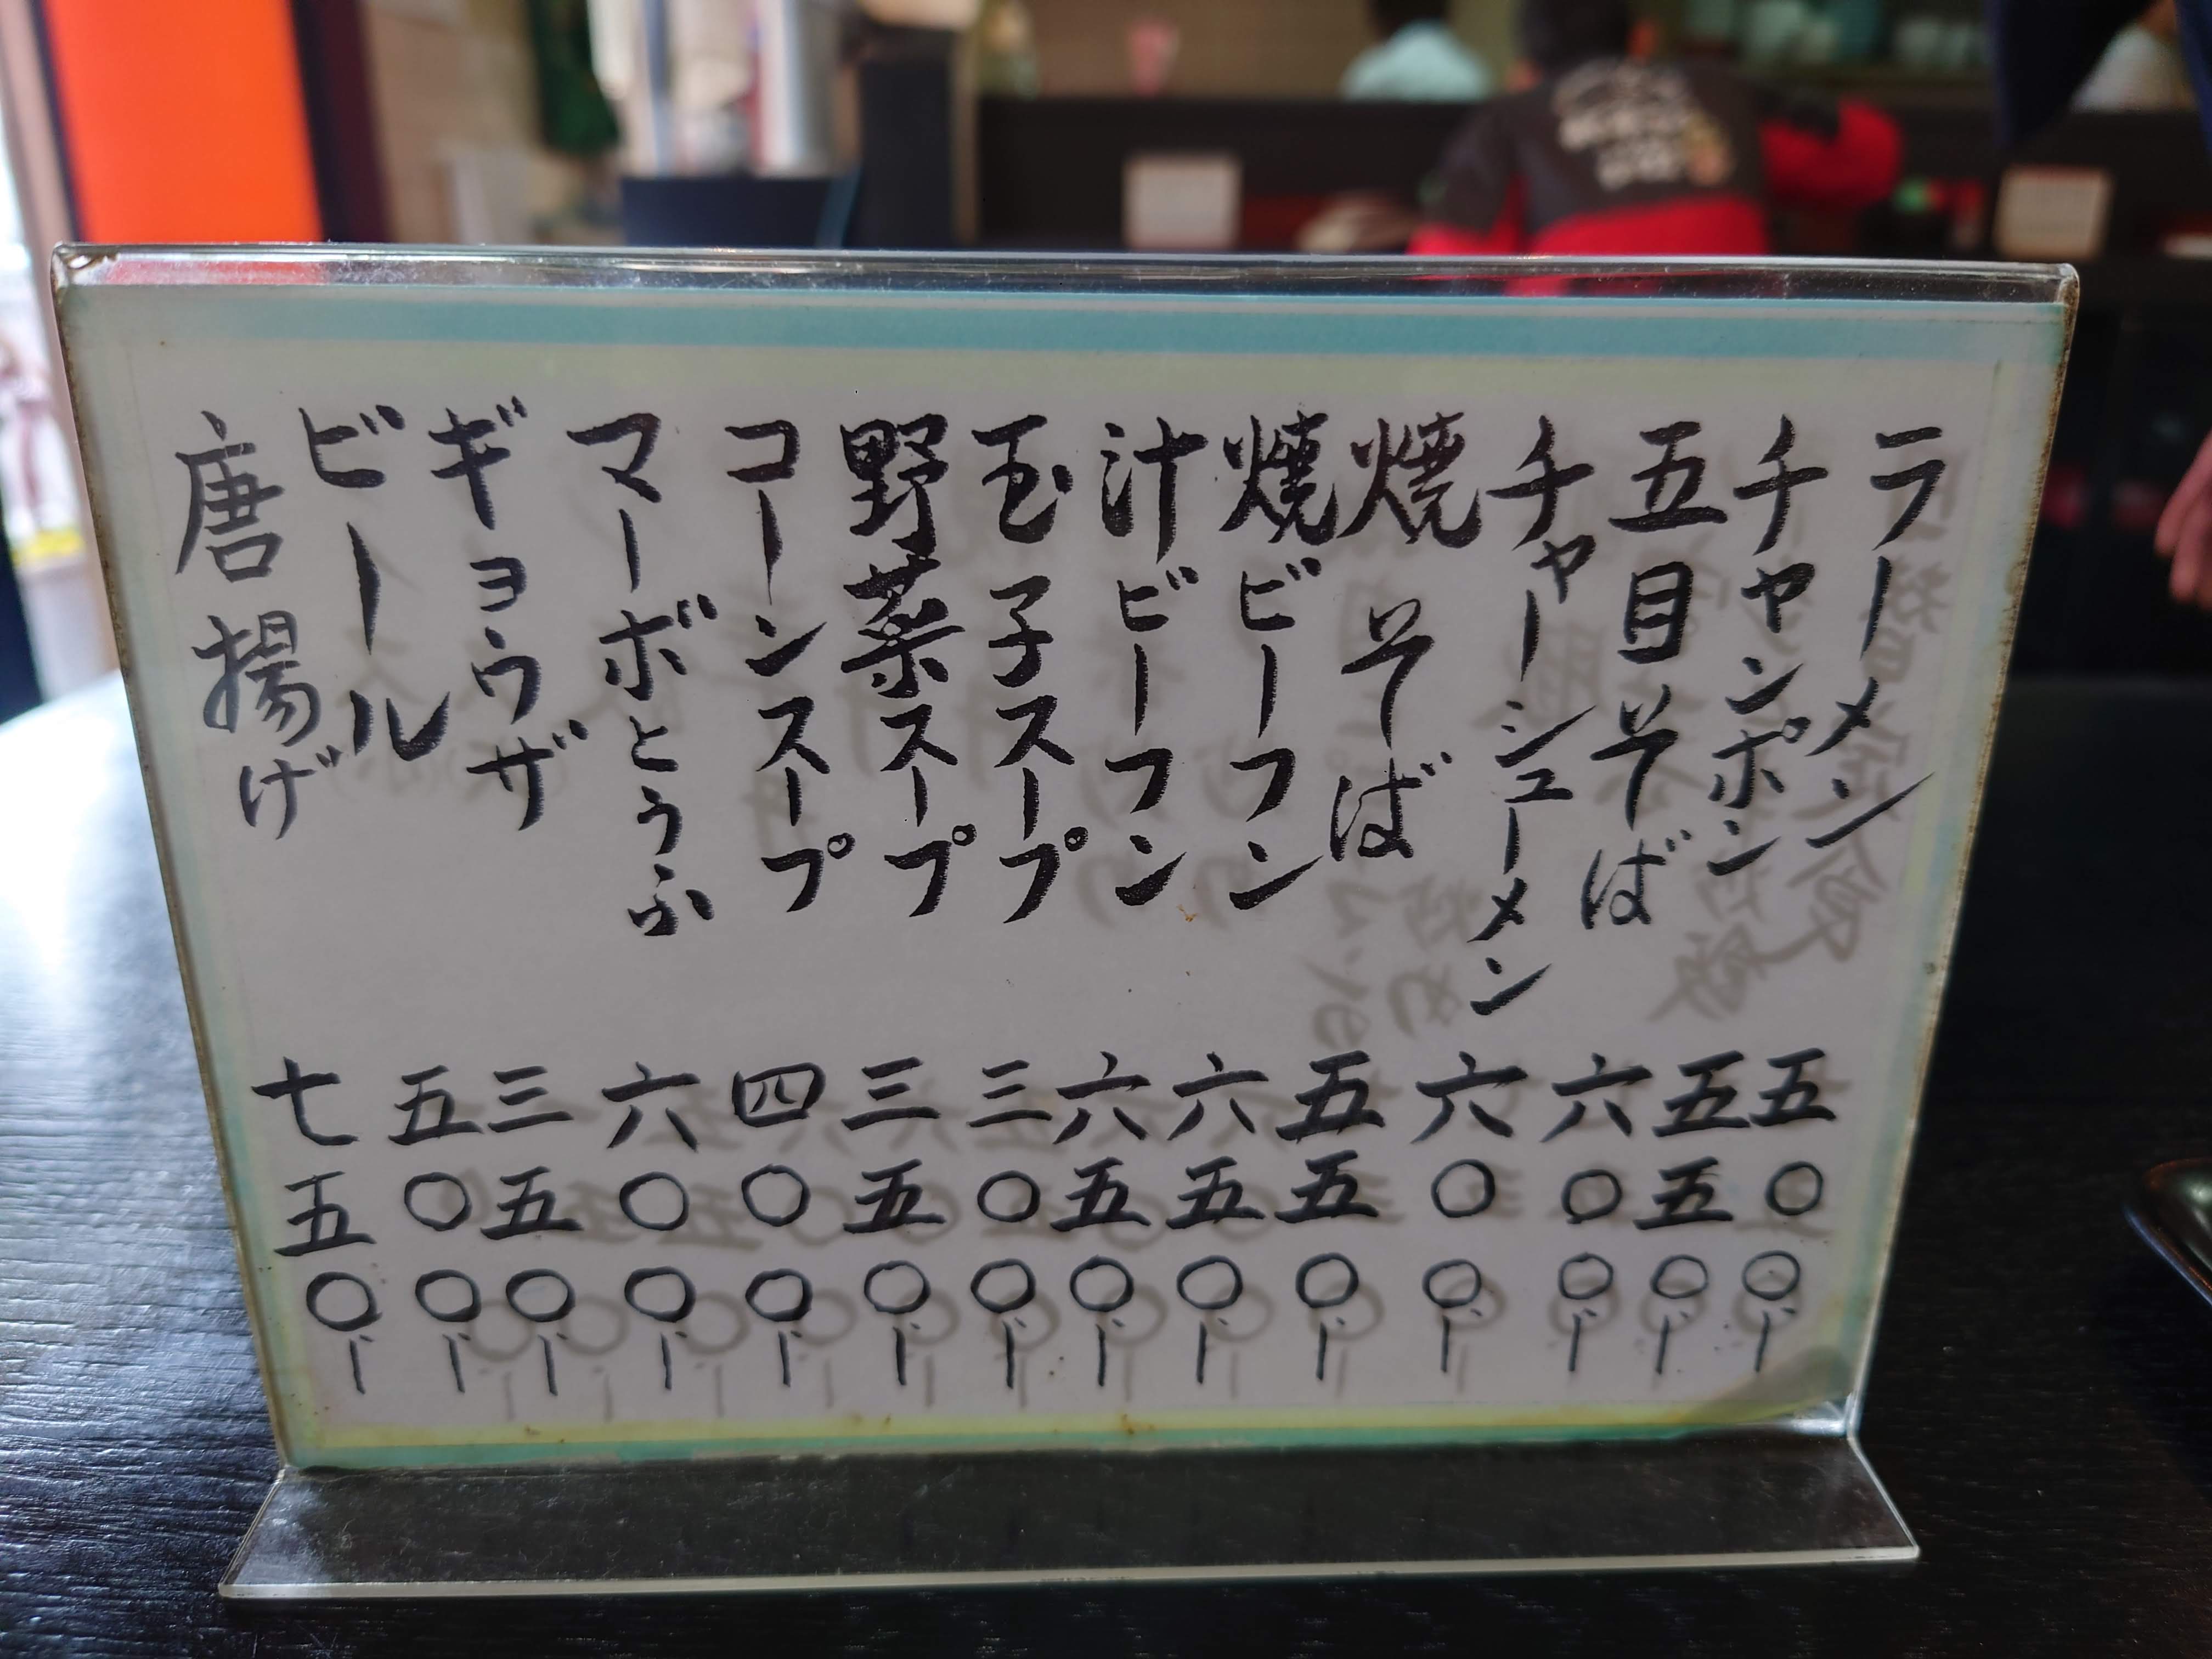 ラーメン 五〇〇円
チャンポン 五五〇円
五目そば 六〇〇円
チャーシューメン 六〇〇円
焼そば 五五〇円
焼ビーフン 六五〇円
汁ビーフン 六五〇円
玉子スープ 三〇〇円
野菜スープ 三五〇円
コーンスープ 四〇〇円
マーボとうふ 六〇〇円
ギョウザ 三五〇円
ビール 五〇〇円
唐揚げ 七五〇円